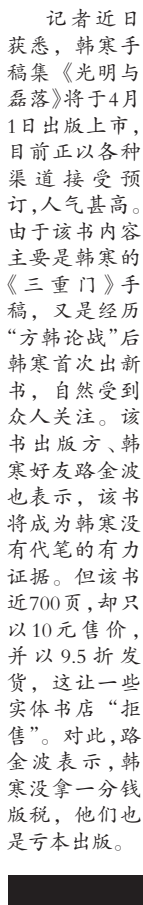 记者近日
获悉，韩寒手
稿集《光明与
磊落》将于4月
1日出版上市，
目前正以各种
渠道接受预
订，人气甚高。
由于该书内容
主要是韩寒的
《三重门》手
稿，又是经历
“方韩论战”后
韩寒首次出新
书，自然受到
众人关注。该
书出版方、韩
寒好友路金波
也表示，该书
将成为韩寒没
有代笔的有力
证据。但该书
近700页，却只
以10元售价，
并以9.5折发
货，这让一些
实体书店“拒
售”。对此，路
金波表示，韩
寒没拿一分钱
版税，他们也
是亏本出版。